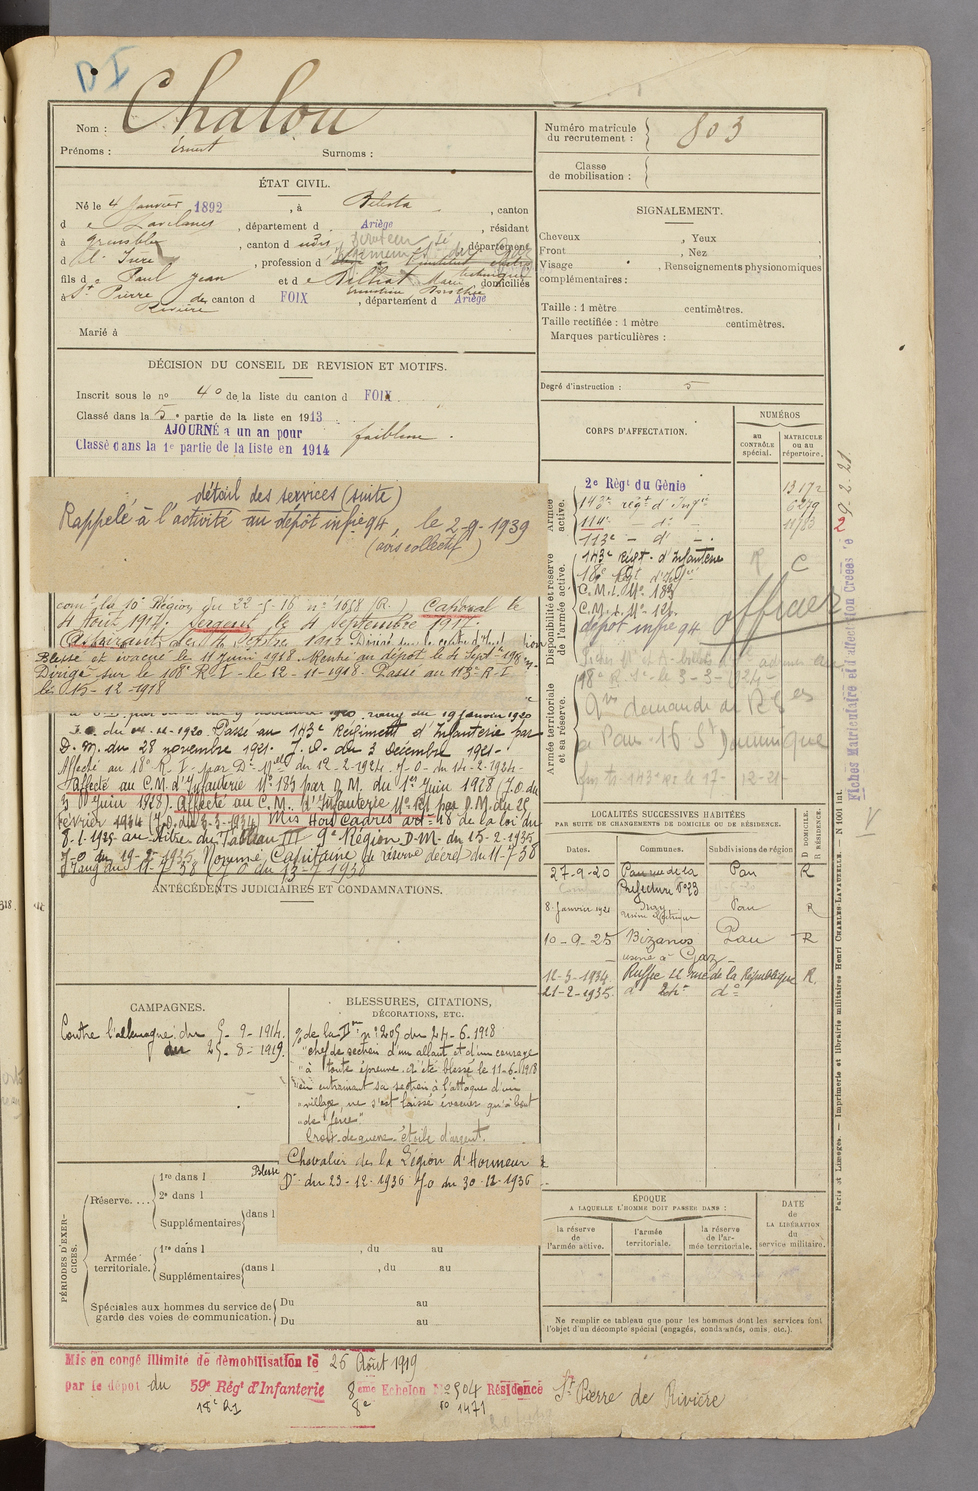 D I
Nom : Chalou
Numéro matricule du recrutement : 803
Prénoms : Ernest Surnoms :
Classe de mobilisation :
ÉTAT CIVIL.
Né le 4 Janvier 1892, à Belesta, canton
d e Lavelanet, département d Ariège, résidant
à Grenoble, canton d udit, département
d e l'Isère, profession d
fils d Paul Jean et d e Billiat Marie domiciliés
à St Pierre de Rivière canton d FOIX, département d Ariège
Marié à
SIGNALEMENT.
Cheveux , Yeux ,
Front , Nez ,
Visage , Renseignements physionomiques
complémentaires :
Taille : 1 mètre centimètres.
Taille rectifiée : 1 mètre centimètres.
Marques particulières :
Degré d'instruction : 5
DÉCISION DU CONSEIL DE REVISION ET MOTIFS.
Inscrit sous le no 40 de la liste du canton d FOIX.
Classé dans la 5e partie de la liste en 1913
AJOURNÉ a un an pour faiblesse.
Classé dans la 1e partie de la liste en 1914
détail des services (suite)
Rappelé à l'activité au dépôt infie 94, le 2-9-1939
(avis collectif)
comt la 10e Région du 22-5-16 no 1658 (R.) Caporal le
4 Août 1917. Sergent le 4 septembre 1917.
Aspirant
Blessé et évacué le 11 Juin 1918. Rentré au dépôt le 4 Septbre 1918
Dirigé sur le 108e R.I. le 12-11-1918. Passé au 113e R.I.
le 15-12-1918
novembre 1920. rang du 19 janvier 1920
J.O. du 14-11-1920. Passé au 143e Régiment d'Infanterie par
D.M. du 28 novembre 1921. J.O. du 2 Décembre 1921.
Affecté au 18e R.I. par Don Mlle du 12-2-1924. J-O- du 14-2-1924-
Affecté au C.M. d'Infanterie No 183 par D.M. du 1er Juin 1928 (J.O. du
3 Juin 1928). Affecté au C.M. d'Infanterie No 121 par D.M. du 25
février 1934 (J.O. du 3-3-1934) Mis Hors Cadres art-48 de la loi du
8-1-1925 au titre du Tableau III 9e Région D-M- du 15-2-1935
J-O du 19-2-1935. Nommé Capitaine de réserve décret du 11-7-38
Rang du 11-7-38 (J O du 13-7-1938
ANTÉCÉDENTS JUDICIAIRES ET CONDAMNATIONS.
CORPS D'AFFECTATION.
NUMÉROS
au CONTRÔLE spécial.
MATRICULE ou au répertoire.
Armée active.
2e Régt du Génie 13172
143e régt d'Infie 6279
114e - d° - 11/23
113e - d° -
Disponibilité et réserve de l'armée active.
143e Régt. d'Infanterie R C
18e Rgt d'Infie
C.M.I. No 183
C.M.I. No 121.
dépôt infie 94
officier
Armée territoriale et sa réserve.
18e R.I. le 3-3-1924-
demande de
à Pau. 16 St Dominique
143e RI le 17-12-21-
2 9-2-21
Fiches Matriculaire et d'affectation Créées le
V
LOCALITÉS SUCCESSIVES HABITÉES
PAR SUITE DE CHANGEMENTS DE DOMICILE OU DE RÉSIDENCE.
Dates. Communes. Subdivisions de région D DOMICILE. R RÉSIDENCE.
27-9-20 Pau rue de la Préfecture No 23 Pau R
8 Janvier 1921 Pau R
10-9-25 Bizanos usine à Gaz Pau R
12-3-1934. Ruffec 22 rue de la République R.
21-2-1935. d° d°
CAMPAGNES.
Contre l'allemagne du 5-9-1914.
au 25-8-1919.
BLESSURES, CITATIONS, DÉCORATIONS, ETC.
% de la Don no 205 du 24-6-1918
"chef de section d'un allant et d'un courage
"à toute épreuve. A été blessé le 11-6-1918
"en entrainant sa section à l'attaque d'un
"village, ne s'est laissé évacuer qu'à bout
"de force"
Croix de guerre étoile d'argent.
Blessé
Chevalier de la Légion d'Honneur
Dt du 23-12-1936 JO du 30-12-1936
PÉRIODES D'EXERCICES.
Réserve....
1re dans l
2e dans l
Supplémentaires dans l
Armée territoriale.
1re dans l , du au
Supplémentaires dans l , du au
Spéciales aux hommes du service de garde des voies de communication.
Du au
Du au
ÉPOQUE
A LAQUELLE L'HOMME DOIT PASSER DANS :
la réserve de l'armée active.
l'armée territoriale.
la réserve de l'armée territoriale.
DATE de LA LIBÉRATION du service militaire.
Ne remplir ce tableau que pour les hommes dont les services font
l'objet d'un décompte spécial (engagés, condamnés, omis, etc.).
Paris et Limoges. — Imprimerie et librairie militaires Henri CHARLES-LAVAUZELLE. — N 1001 int.
Mis en congé illimité de démobilisation le 25 Août 1919
par le dépôt du 59e Régt d'Infanterie 8eme Echelon No 2504 Résidence St Pierre de Rivière
18e RI 8e no 1471